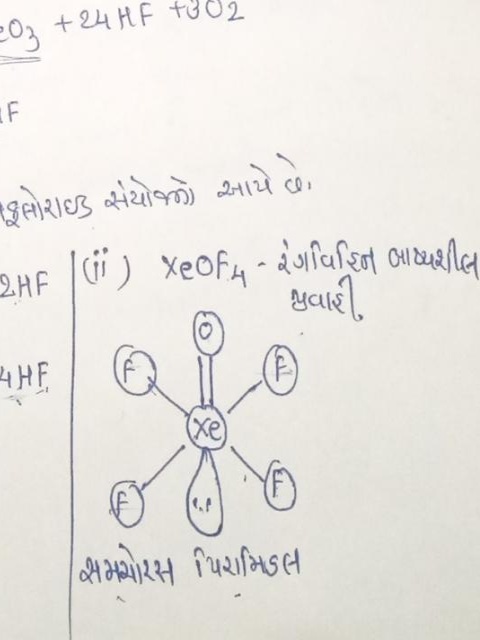 eO3 + 24HF + 3O2
HF
ફ્લોરાઇડ સંયોજનો આપે છે.
2HF
(ii) XeOF4 - રંગવિહિન બાષ્પશીલ
પ્રવાહી
O
F F
4HF
Xe
F F
સમચોરસ પિરામિડલ